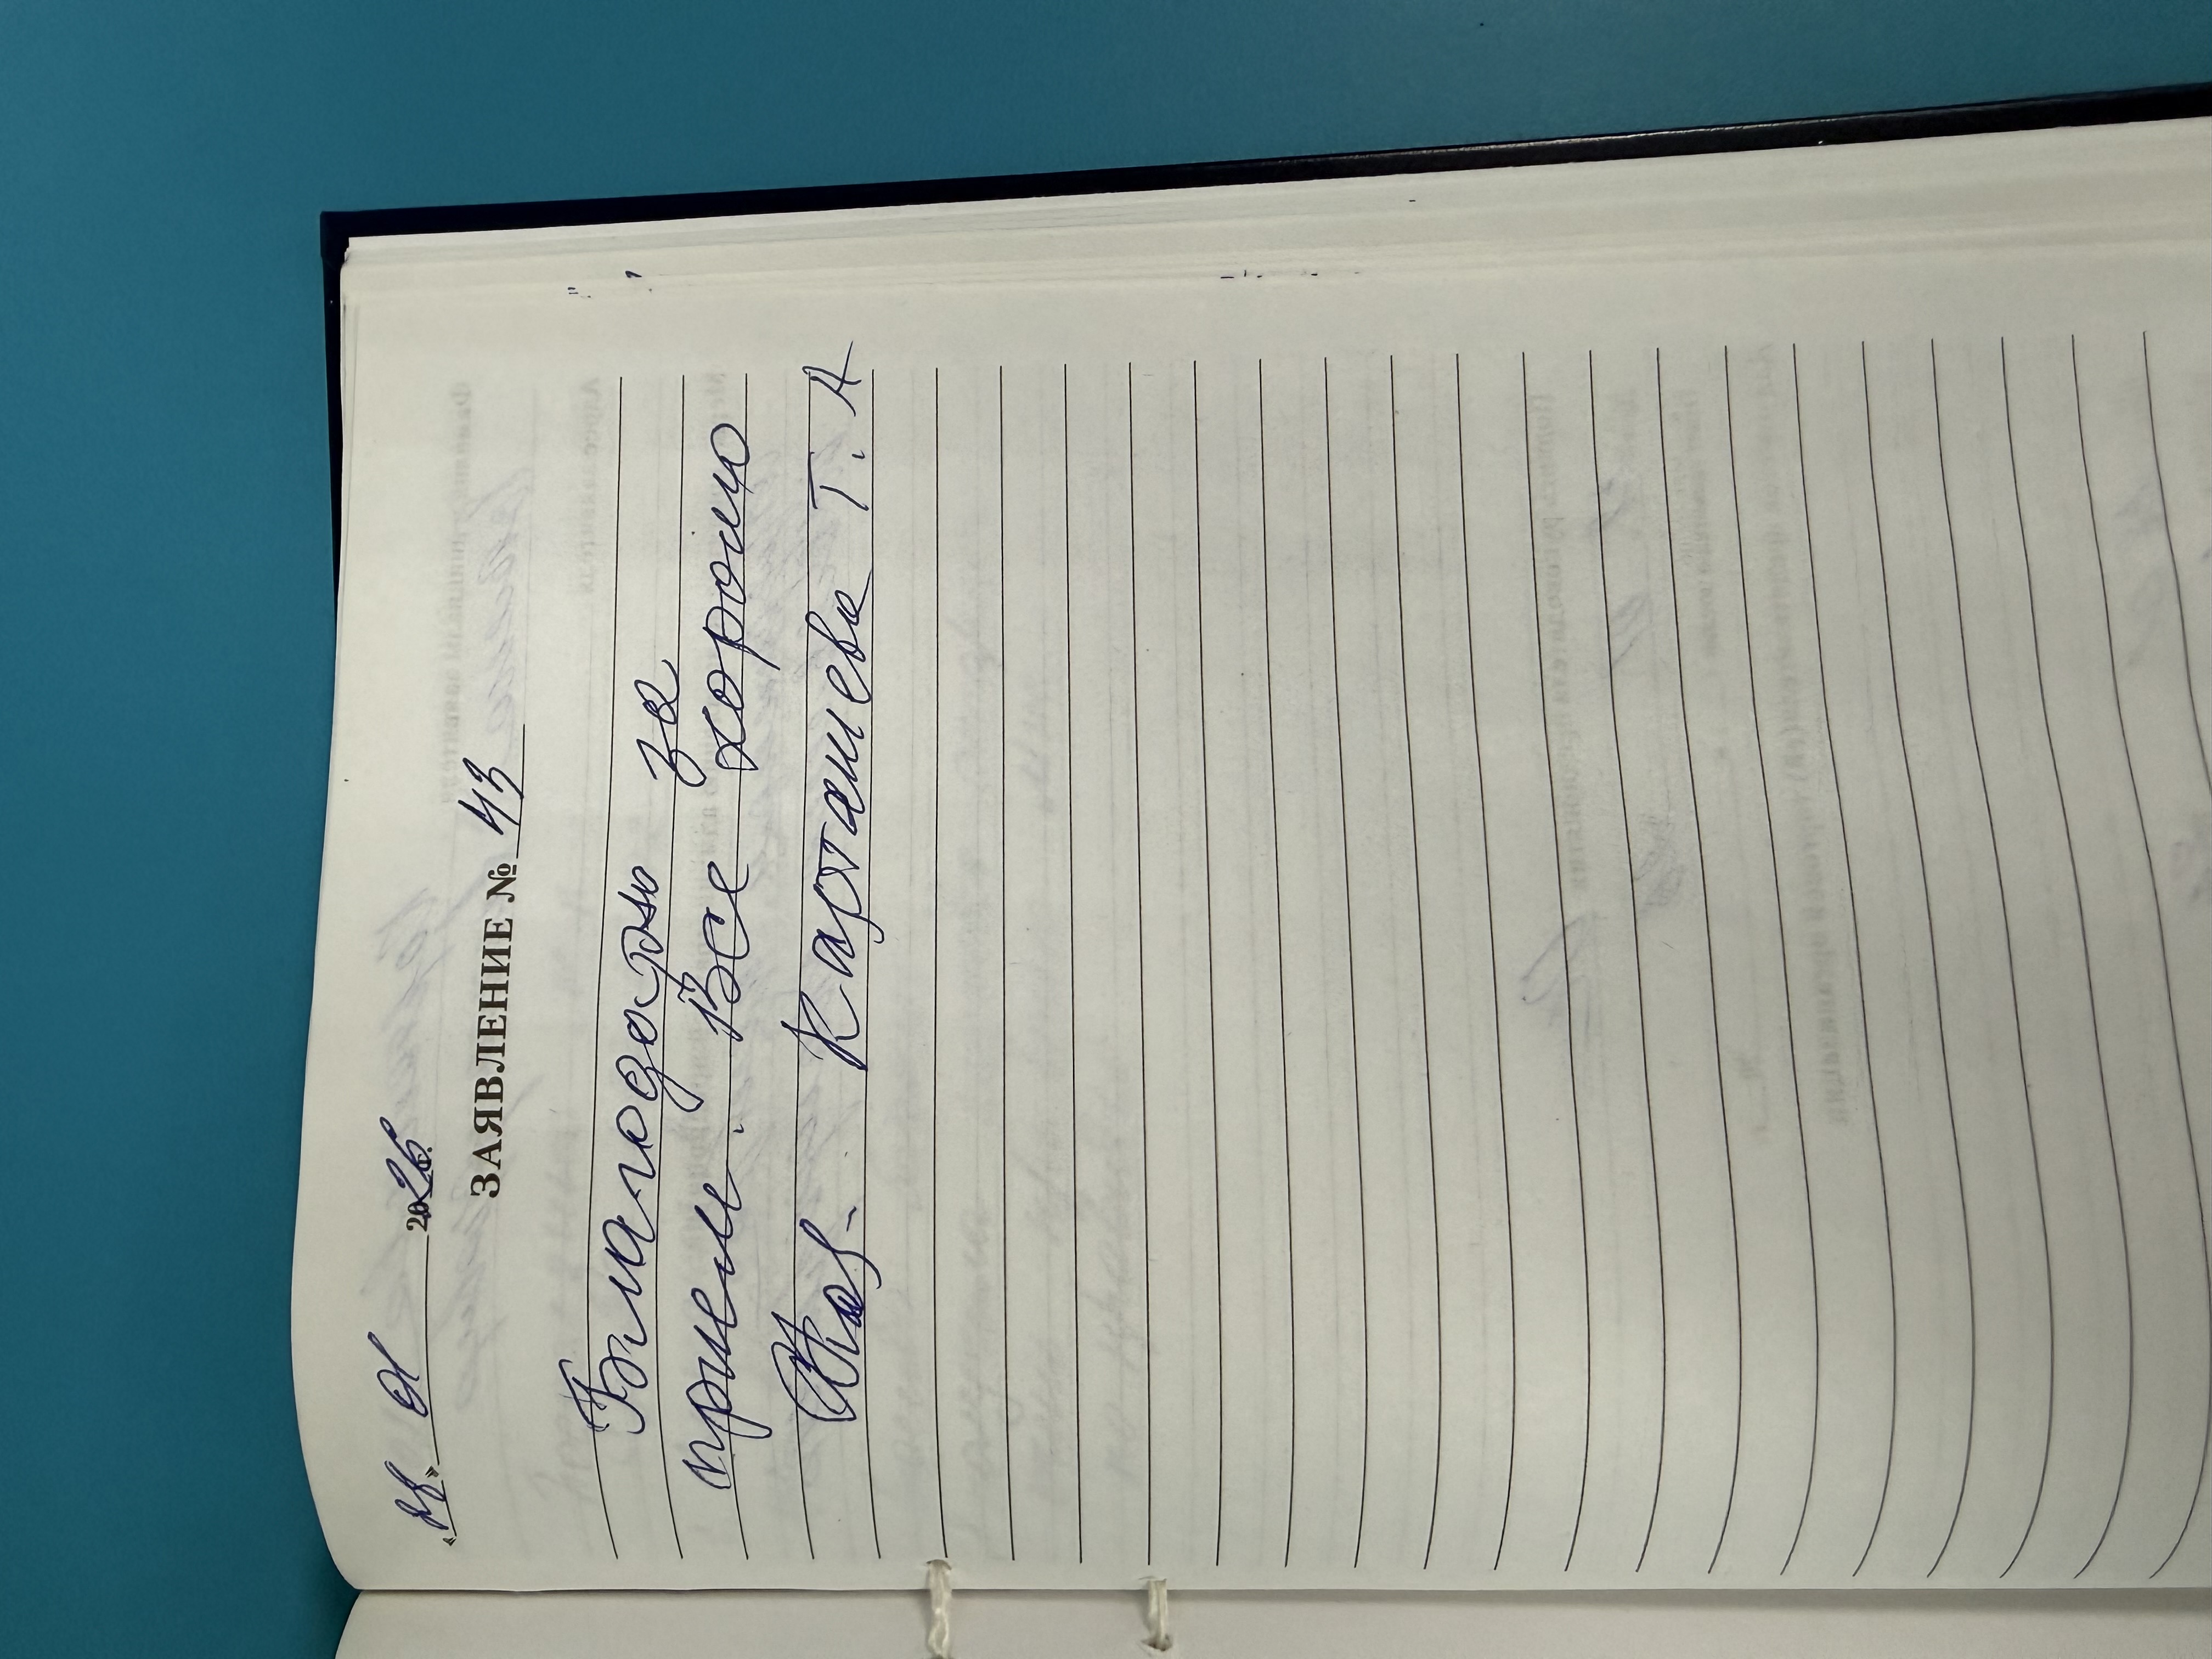 01 2026.
ЗАЯВЛЕНИЕ № 43
Благодарю за
прием. Все хорошо
Карташева Т. А